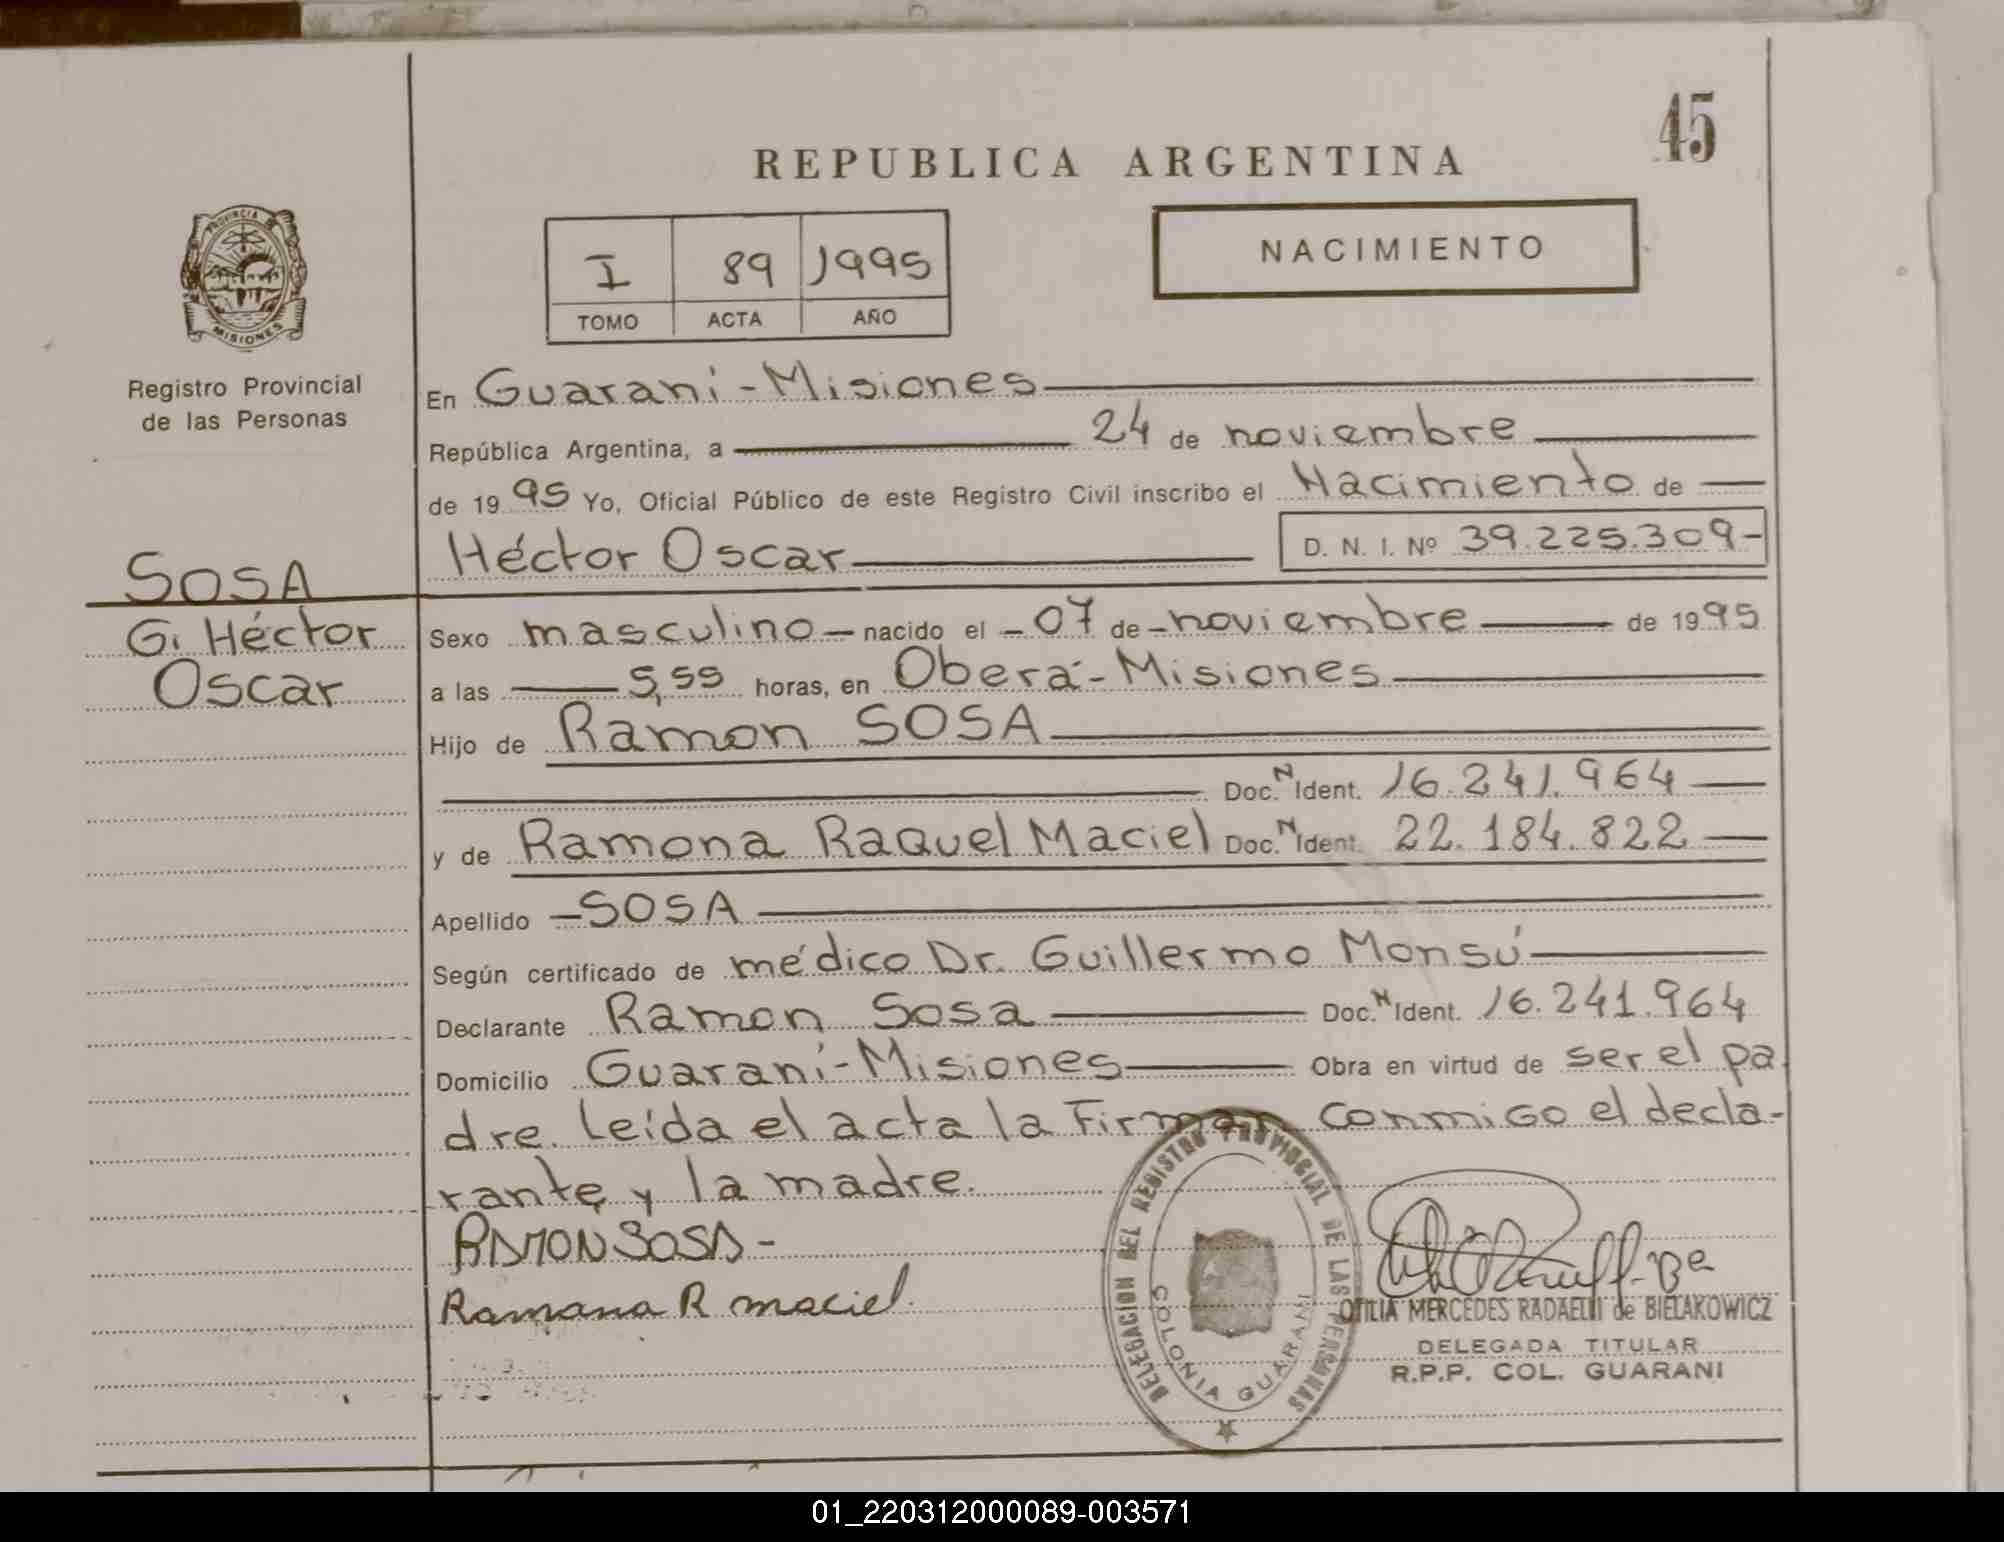 45
REPUBLICA ARGENTINA
PROVINCIA DE MISIONES
I 89 1995
TOMO ACTA AÑO
NACIMIENTO
Registro Provincial
de las Personas
En Guaraní - Misiones
República Argentina, a 24 de noviembre
de 19 95 Yo, Oficial Público de este Registro Civil inscribo el Nacimiento de
Héctor Oscar D. N. I. Nº 39.225.309-
SOSA
G. Héctor
Oscar
Sexo masculino - nacido el - 07 de - noviembre de 1995
a las 5,55 horas, en Oberá - Misiones
Hijo de Ramon SOSA
Doc. N Ident. 16.241.964
y de Ramona Raquel Maciel Doc. N Ident. 22.184.822
Apellido - SOSA
Según certificado de médico Dr. Guillermo Monsú
Declarante Ramon Sosa Doc. N Ident. 16.241.964
Domicilio Guaraní - Misiones Obra en virtud de ser el pa
dre. Leída el acta la Firman conmigo el decla-
rante y la madre.
RAMON SOSA -
Ramona R maciel.
DELEGACION DEL REGISTRO PROVINCIAL DE LAS PERSONAS
COLONIA GUARANI
OFILIA MERCEDES RADAELLI de BIELAKOWICZ
DELEGADA TITULAR
R.P.P. COL. GUARANI
01_220312000089-003571